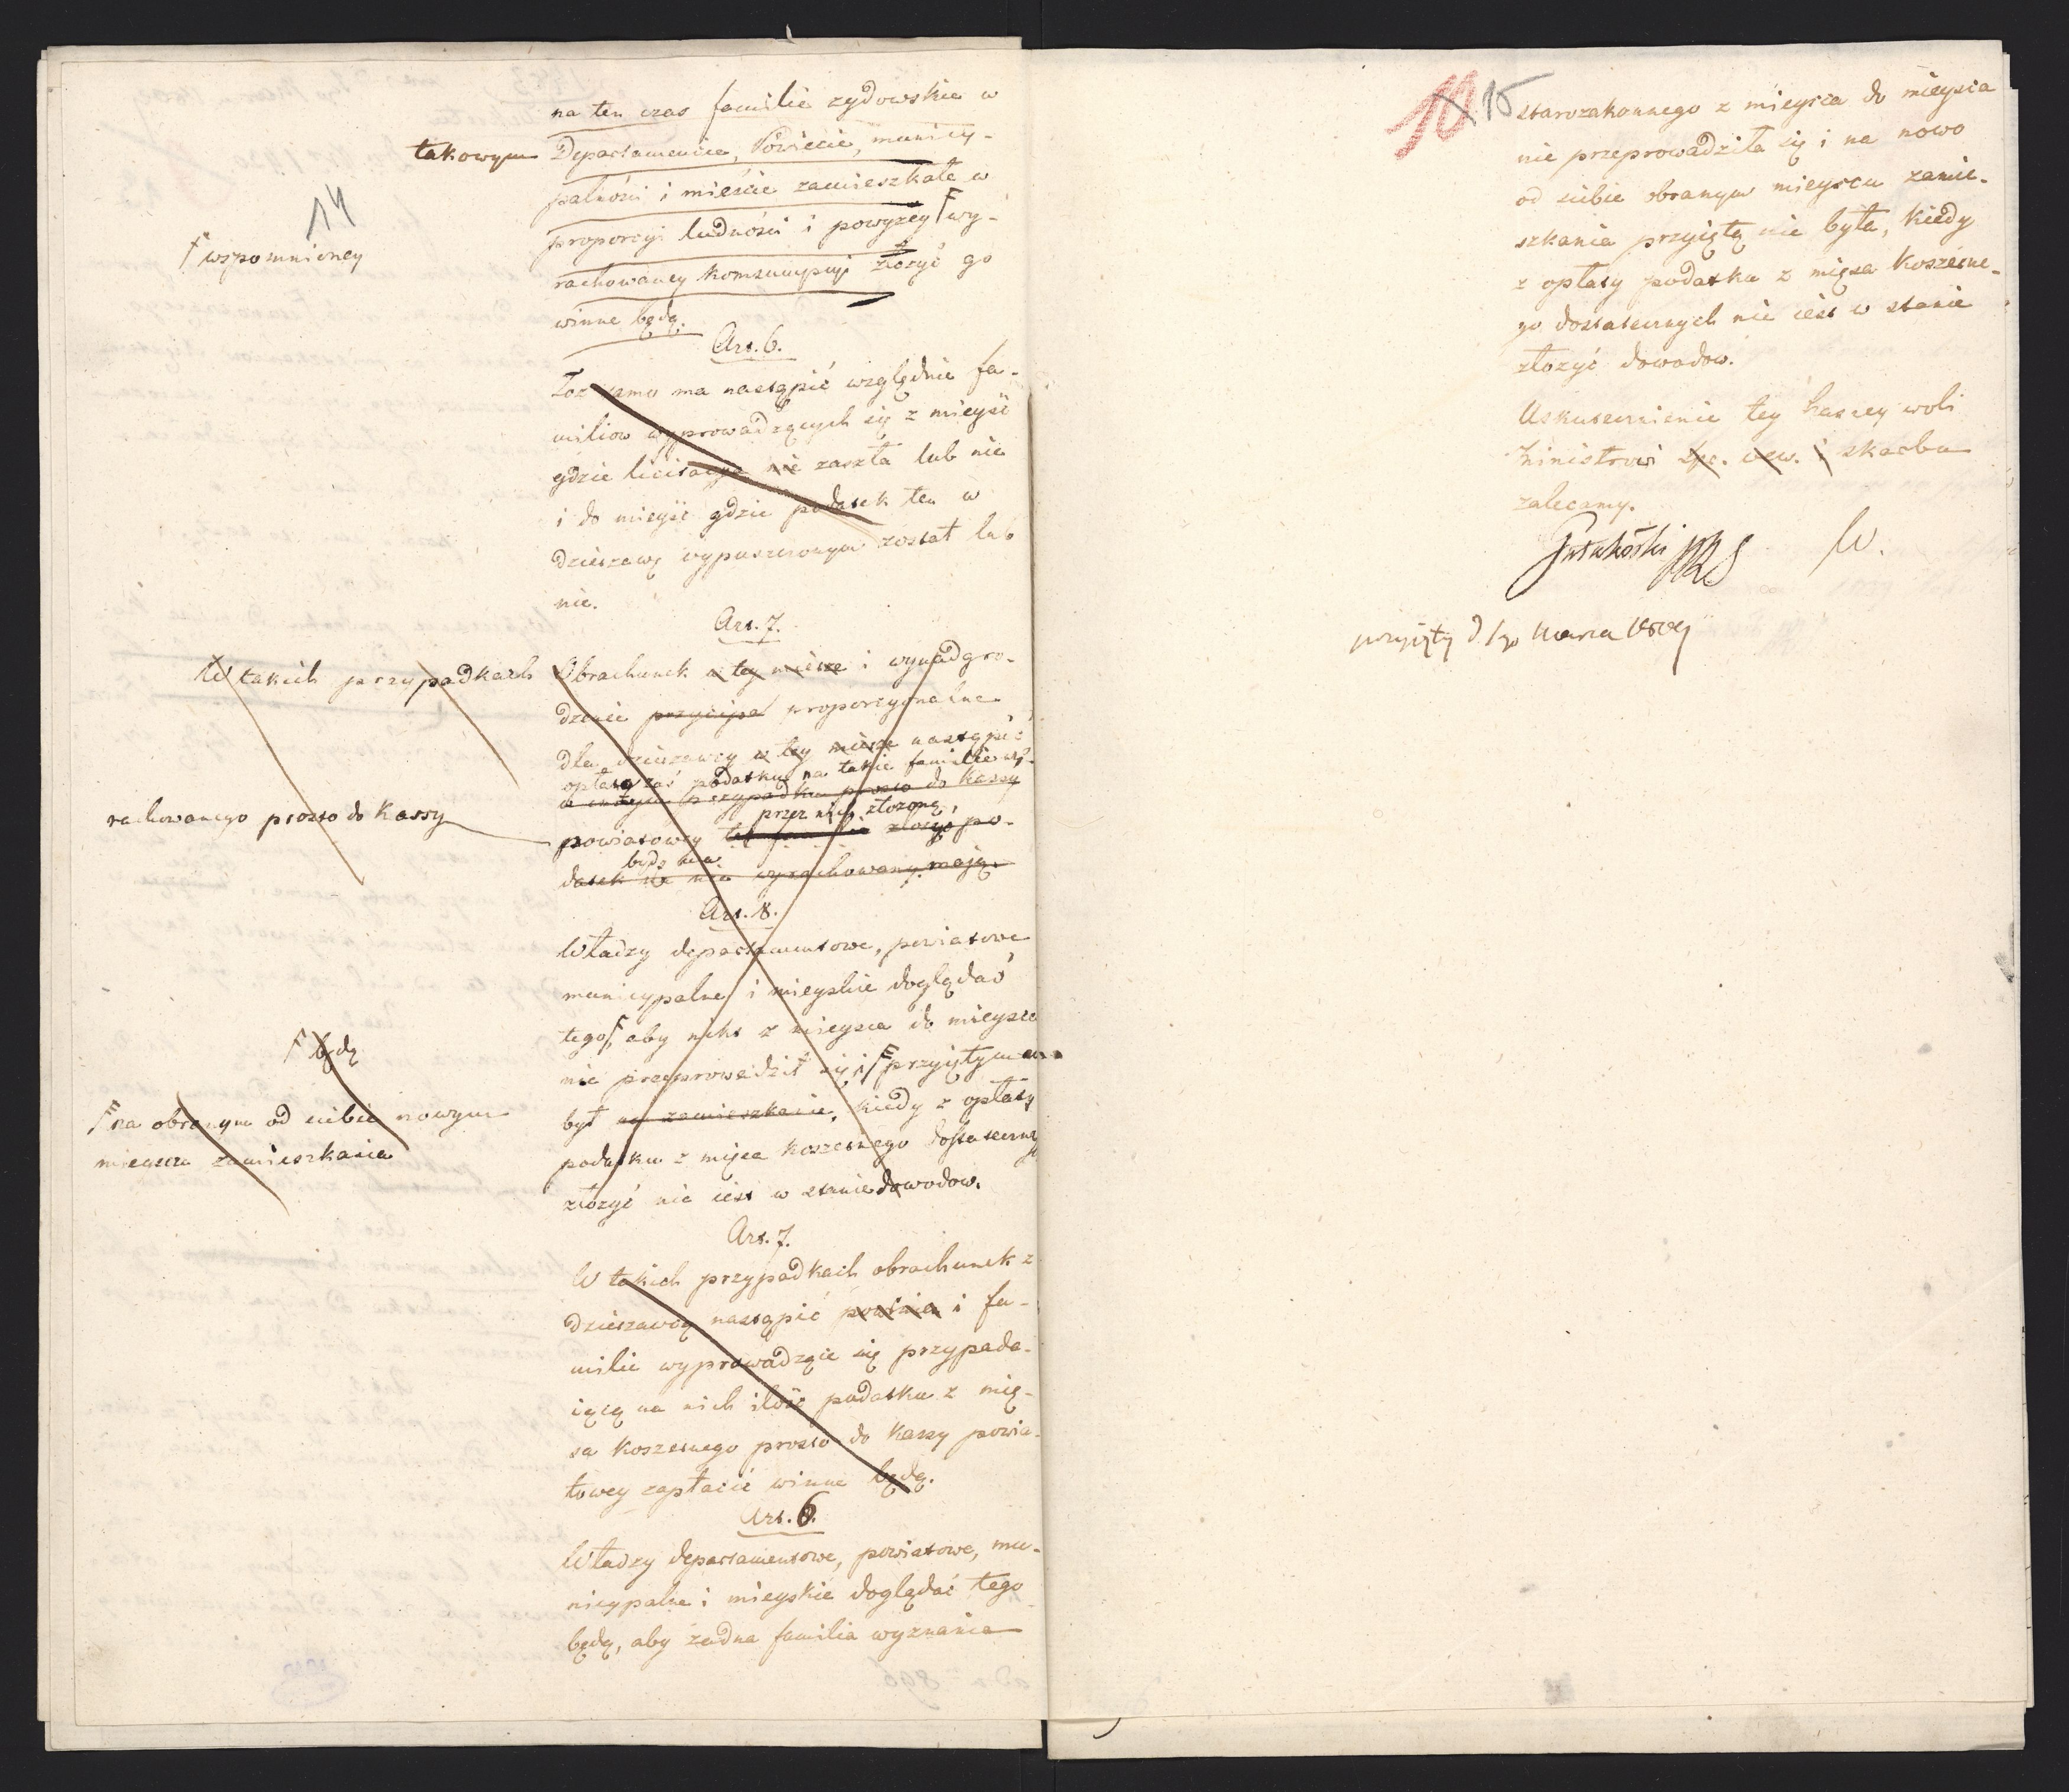 14
na ten czas familie zydowskie w
takowym Departamencie, Powiecie, municy-
palności i mieście zamieszkałe w
proporcyi ludności i powyzey F wy-
F wspomnioney
rachowaney Komsumpcyi złożyć go
winne będą.
Art. 6.
Toż samo ma nastąpić względnie fa-
miliow wyprowadzących się z mieysc
gdzie licitacya nie zaszła lub nie
i do mieysc gdzie podatek ten w
dzierzawę wypuszczonym został lub
nie.
Art. 7.
W takich przypadkach Obrachunek w tey mierze i wynadgro-
dzenie proporcyonalne
dla dzierzawcy w tey mierze nastąpić
opłatą zaś podatku na takie familie wy-
w innym przypadku prosto do Kassy
rachowanego prosto do Kassy
przez nich złożoną,
powiatowey złożyć po-
będzie
datek na nich wyrachowany mają.
Art. 8.
Władzy departamentowe, powiatowe
municypalne i mieyskie doglądać
tego F, aby nikt z mieysca do mieysca
F będą
nie przeprowadził się i F przyiętym
F na obranym od siebie nowym
mieyscu zamieszkania
był na zamieszkanie, kiedy z opłaty
podatku z mięsa koszernego dostatecznych
złożyć nie iest w stanie dowodow.
Art. 7.
W takich przypadkach obrachunek z
dzierzawcą nastąpić powinien i fa-
milie wyprowadzące się przypada-
iącą na nich ilość podatku z mię-
sa koszernego prosto do Kassy powia-
towey zapłacić winne będą.
Art. 6.
Władzy departamentowe, powiatowe, mu-
nicypalne i mieyskie doglądać tego
będą, aby żadna familia wyznania
10 15
starozakonnego z mieysca do mieysca
nie przeprowadziła się i na nowo
od siebie obranym mieyscu zamie-
szkania przyiętą nie była, kiedy
z opłaty podatku z mięsa koszerne-
go dostatecznych nie iest w stanie
złożyć dowodow.
Uskutecznienie tey Naszey woli
Ministrowi Spr. Wew. i skarbu
zalecamy.
Gutakowski PRS W.
przyięty d. 1go Marca 1809